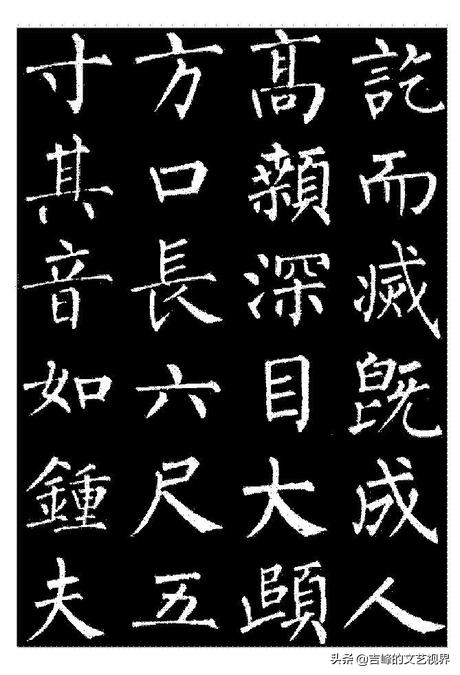 訖而滅旣成人
髙顙深目大頤
方口長六尺五
寸其音如鍾夫
头条 @吉峰的文艺视界